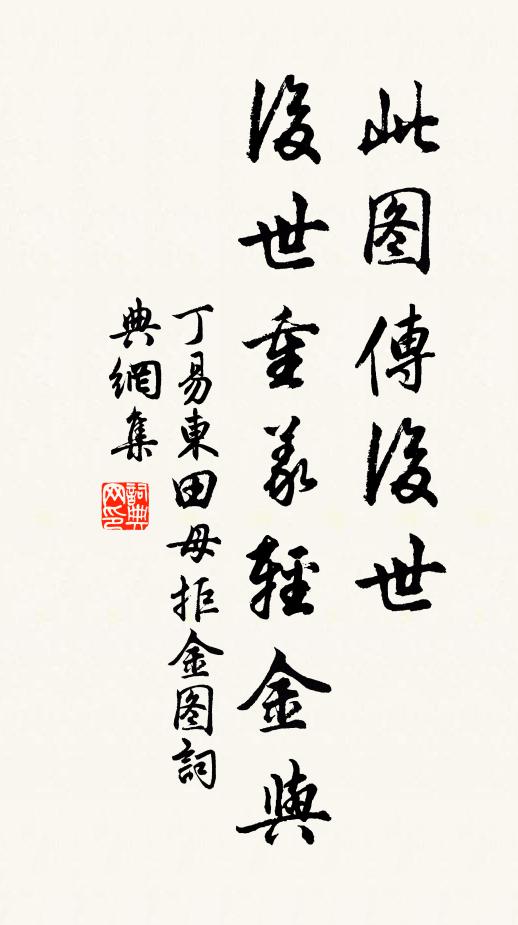 此图傳後世
後世重义輕金與
丁易東田母拒金图詞
典網集
詞典网印